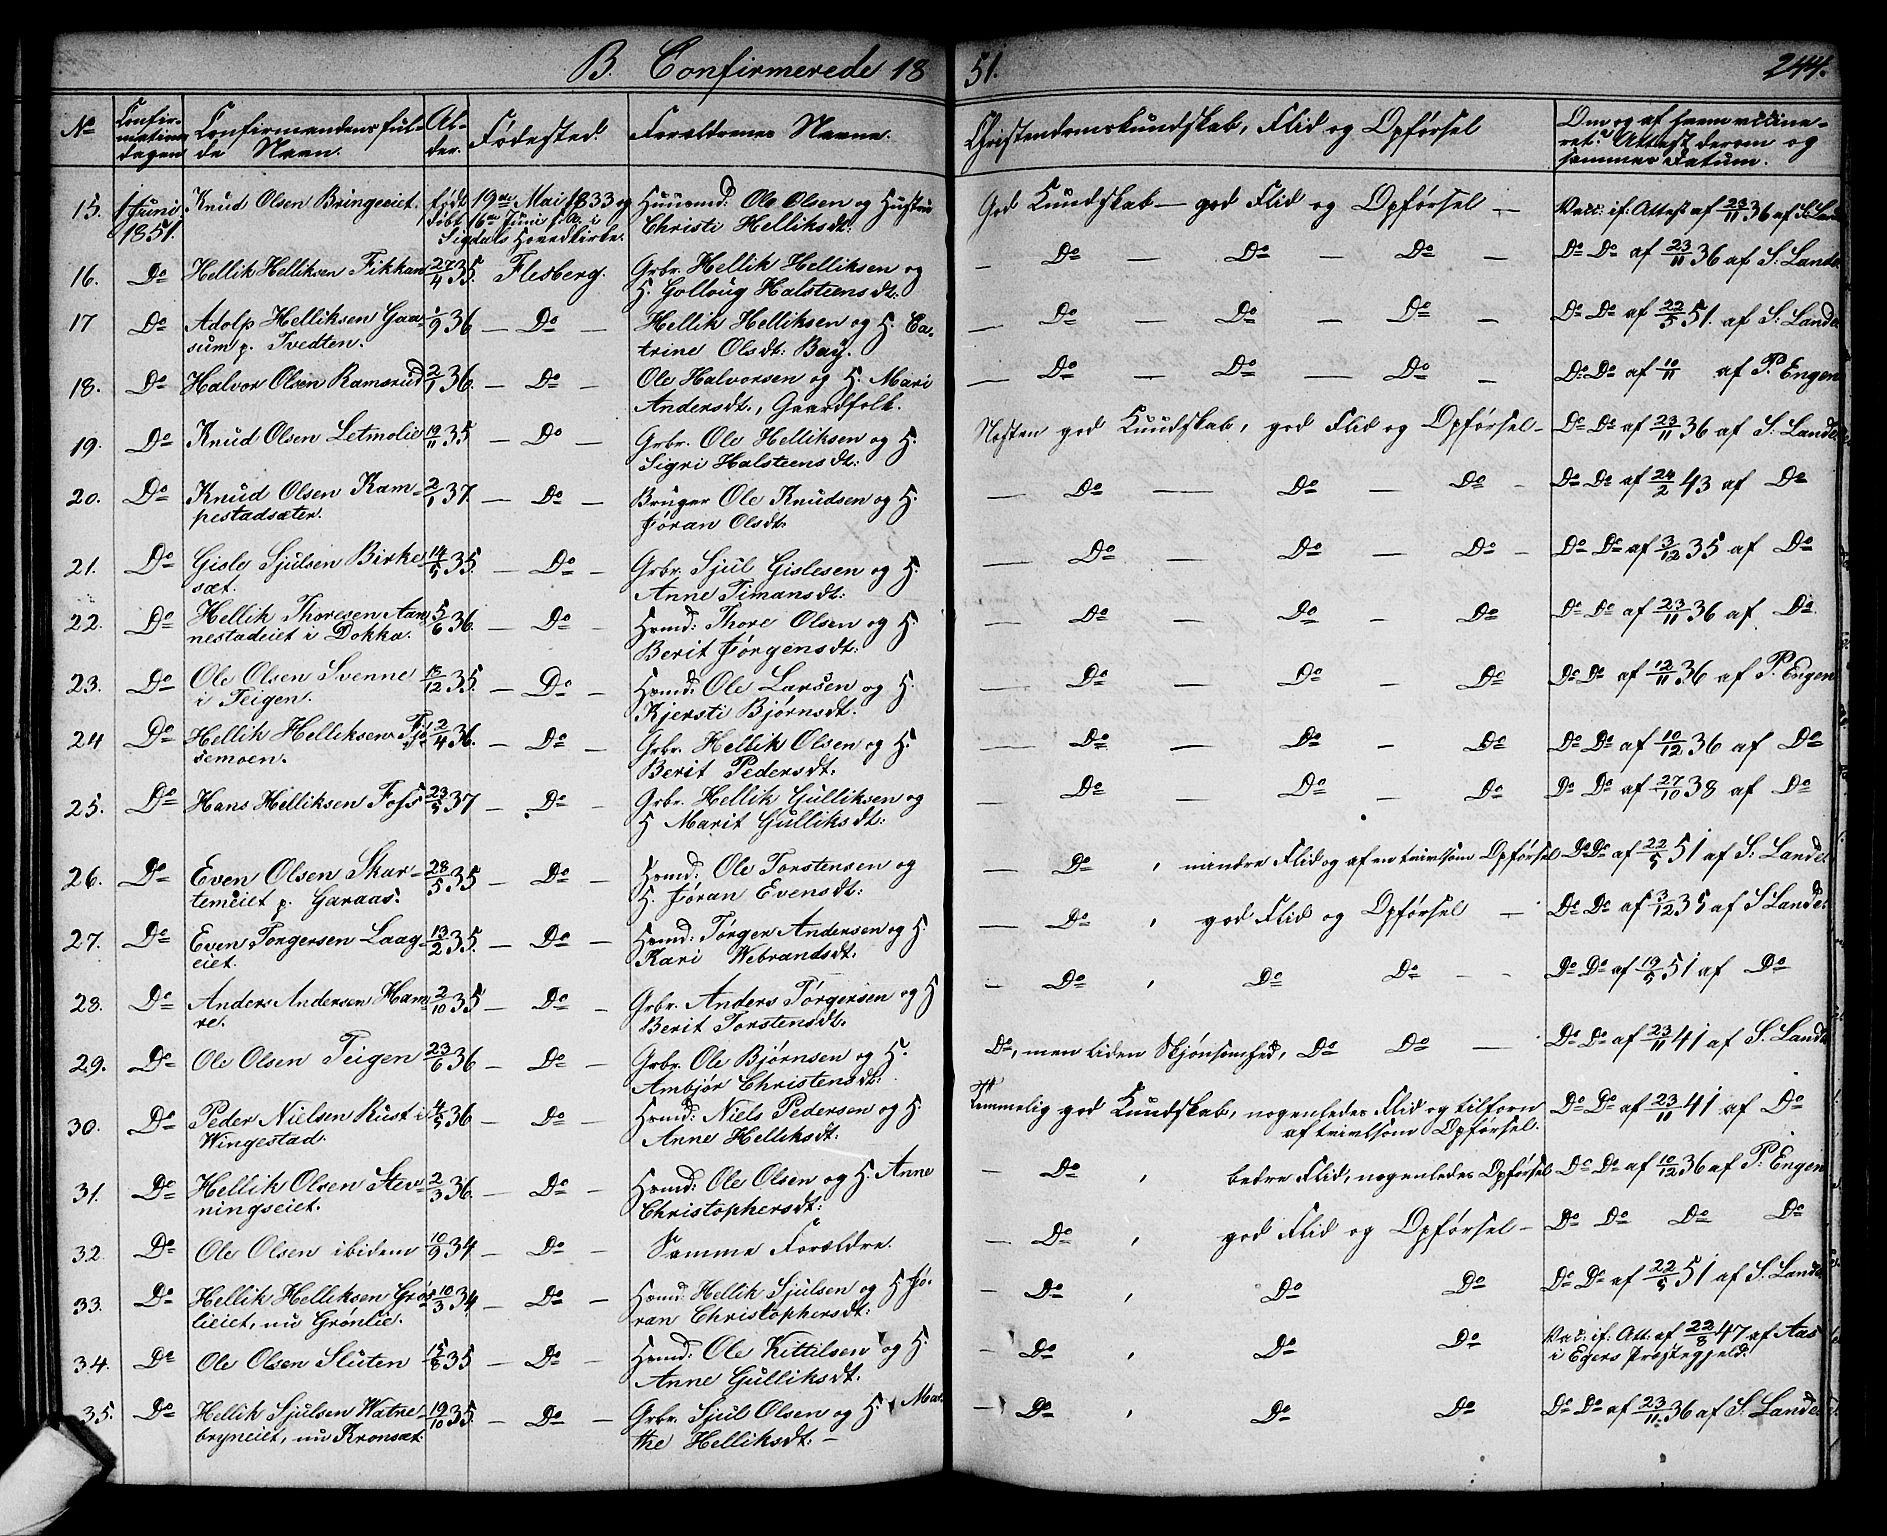 B. Confirmerede 1851. 244.
No Confirmationsdagen Confirmandens fulde Navn. Alder. Fødested. Forældrenes Navne. Christendomskundskab, Flid og Opførsel Om og af hvem vaccineret? Attest derom og sammes Datum.
15. 1 Juni 1851. Knud Olsen Bringeeiet. født 19de Mai 1833 og døbt 16de Juni s. A. i Sigdals Hovedkirke. Huusmd: Ole Olsen og Hustru Christi Helliksdt: God Kundskab — god Flid og Opførsel — Vacc: if: Attest af 23/11 36 af S: Lande
16. Do Hellik Helliksen Fikkan 27/4 35. Flesberg. Grbr. Hellik Helliksen og H. Golloug Halsteensdt: — Do — Do — Do — Do Do af 23/11 36 af S: Lande
17 Do Adolp Helliksen Gaasum p. Tvedten. 1/9 36 — Do — Hellik Helliksen og H. Catrine Olsdt: Bay. — Do — Do — Do — Do Do af 22/5 51. af S: Lande
18. Do Halvor Olsen Ramsrud 2/1 36. — Do — Ole Halvorsen og H. Mari Andersdt., Gaardfolk. — Do — Do — Do — Do Do af 10/11 af P. Engen
19. Do Knud Olsen Letmolie 19/11 35 — Do — Grbr. Ole Helliksen og H. Sigri Halsteensdt: Næsten god Kundskab, god Flid og Opførsel — Do Do af 23/11 36 af S: Lande
20. Do Knud Olsen Kampestadsæter. 2/1 37. — Do — Bruger Ole Knudsen og H. Jøran Olsdt: — Do — Do — Do — Do Do af 24/2 43 af Do
21. Do Gisle Sjulsen Birkesæt. 14/5 35. — Do — Grbr. Sjul Gislesen og H. Anne Timansdt: — Do — Do — Do — Do Do af 3/12 35 af Do
22. Do Hellik Thoresen Aannestadeiet i Dokka. 5/6 36. — Do — Hsmd: Thore Olsen og H. Berit Jørgensdt: — Do — Do — Do Do Do af 23/11 36 af Do
23. Do Ole Olsen Svenne i Teigen. 13/12 35. — Do — Hsmd: Ole Larsen og H. Kjersti Bjørnsdt: — Do — Do — Do Do Do af 12/11 36 af P. Engen
24 Do Hellik Helliksen Fjøsemoen. 2/4 36. — Do — Grbr. Hellik Olsen og H. Berit Pedersdt: — Do — Do — Do Do Do af 10/12 36 af Do
25. Do Hans Helliksen Foss 23/5 37 — Do — Grbr. Hellik Gulliksen og H Marit Gulliksdt: — Do — Do — Do Do Do af 27/10 38 af Do
26. Do Even Olsen Skartemeiet p. Garaas. 28/5 35 — Do — Hsmd: Ole Torstensen og H. Jøran Evensdt: — Do , mindre Flid og af en tvivlsom Opførsel Do Do af 22/5 51 af S: Lande
27. Do Even Torgersen Laageiet. 13/2 35. — Do — Hsmd: Tørger Andersen og H Kari Webrandsdt. — Do , god Flid og Opførsel — Do Do af 3/12 35 af S Lande
28. Do Anders Andersen Hamre. 2/10 35 — Do — Grbr. Anders Tørgersen og H Berit Torstensdt. — Do , Do Do — — Do Do af 19/5 51 af Do
29. Do Ole Olsen Teigen 23/6 36 — Do — Grbr. Ole Bjørnsen og H. Ambjør Christensdt: Do, men liden Skjønsomhed, Do Do — Do Do af 23/11 41 af S. Lande
30. Do Peder Nielsen Rust i Wingestad. 4/5 36 — Do — Hsmd: Niels Pedersen og H. Anne Helliksdt: Temmelig god Kundskab, nogenledes Flid og tilforn af tvivlsom Opførsel. Do Do af 23/11 41 af Do
31. Do Hellik Olsen Stevningseiet. 2/3 36. — Do — Hsmd: Ole Olsen og H. Anne Christophersdt: — Do , bedre Flid, nogenledes Opførsel Do Do af 10/12 36 af P: Engen
32. Do Ole Olsen ibidem 10/9 34 — Do — Samme Forældre. — Do , god Flid og Opførsel — Do Do Do Do
33. Do Hellik Helliksen Grøslieiet, nu Grønlie. 10/3 34 — Do — Hsmd: Hellik Sjulsen og H Jøran Christophersdt: — Do , Do Do Do Do af 22/5 51 af S. Lande
34. Do Ole Olsen Sluten 15/8 35 — Do — Hsmd: Ole Kittilsen og H. Anne Gulliksdt: — Do , Do Do Vac: if: Att: af 22/8 47 af Aas i Egers Præstegjeld.
35. Do Hellik Sjulsen Watnebryneiet, nu Kronsæt. 19/10 35. — Do — Grbr. Sjul Olsen og H. Marthe Helliksdt: — — Do , Do Do Do Do af 23/11 36 af S. Lande